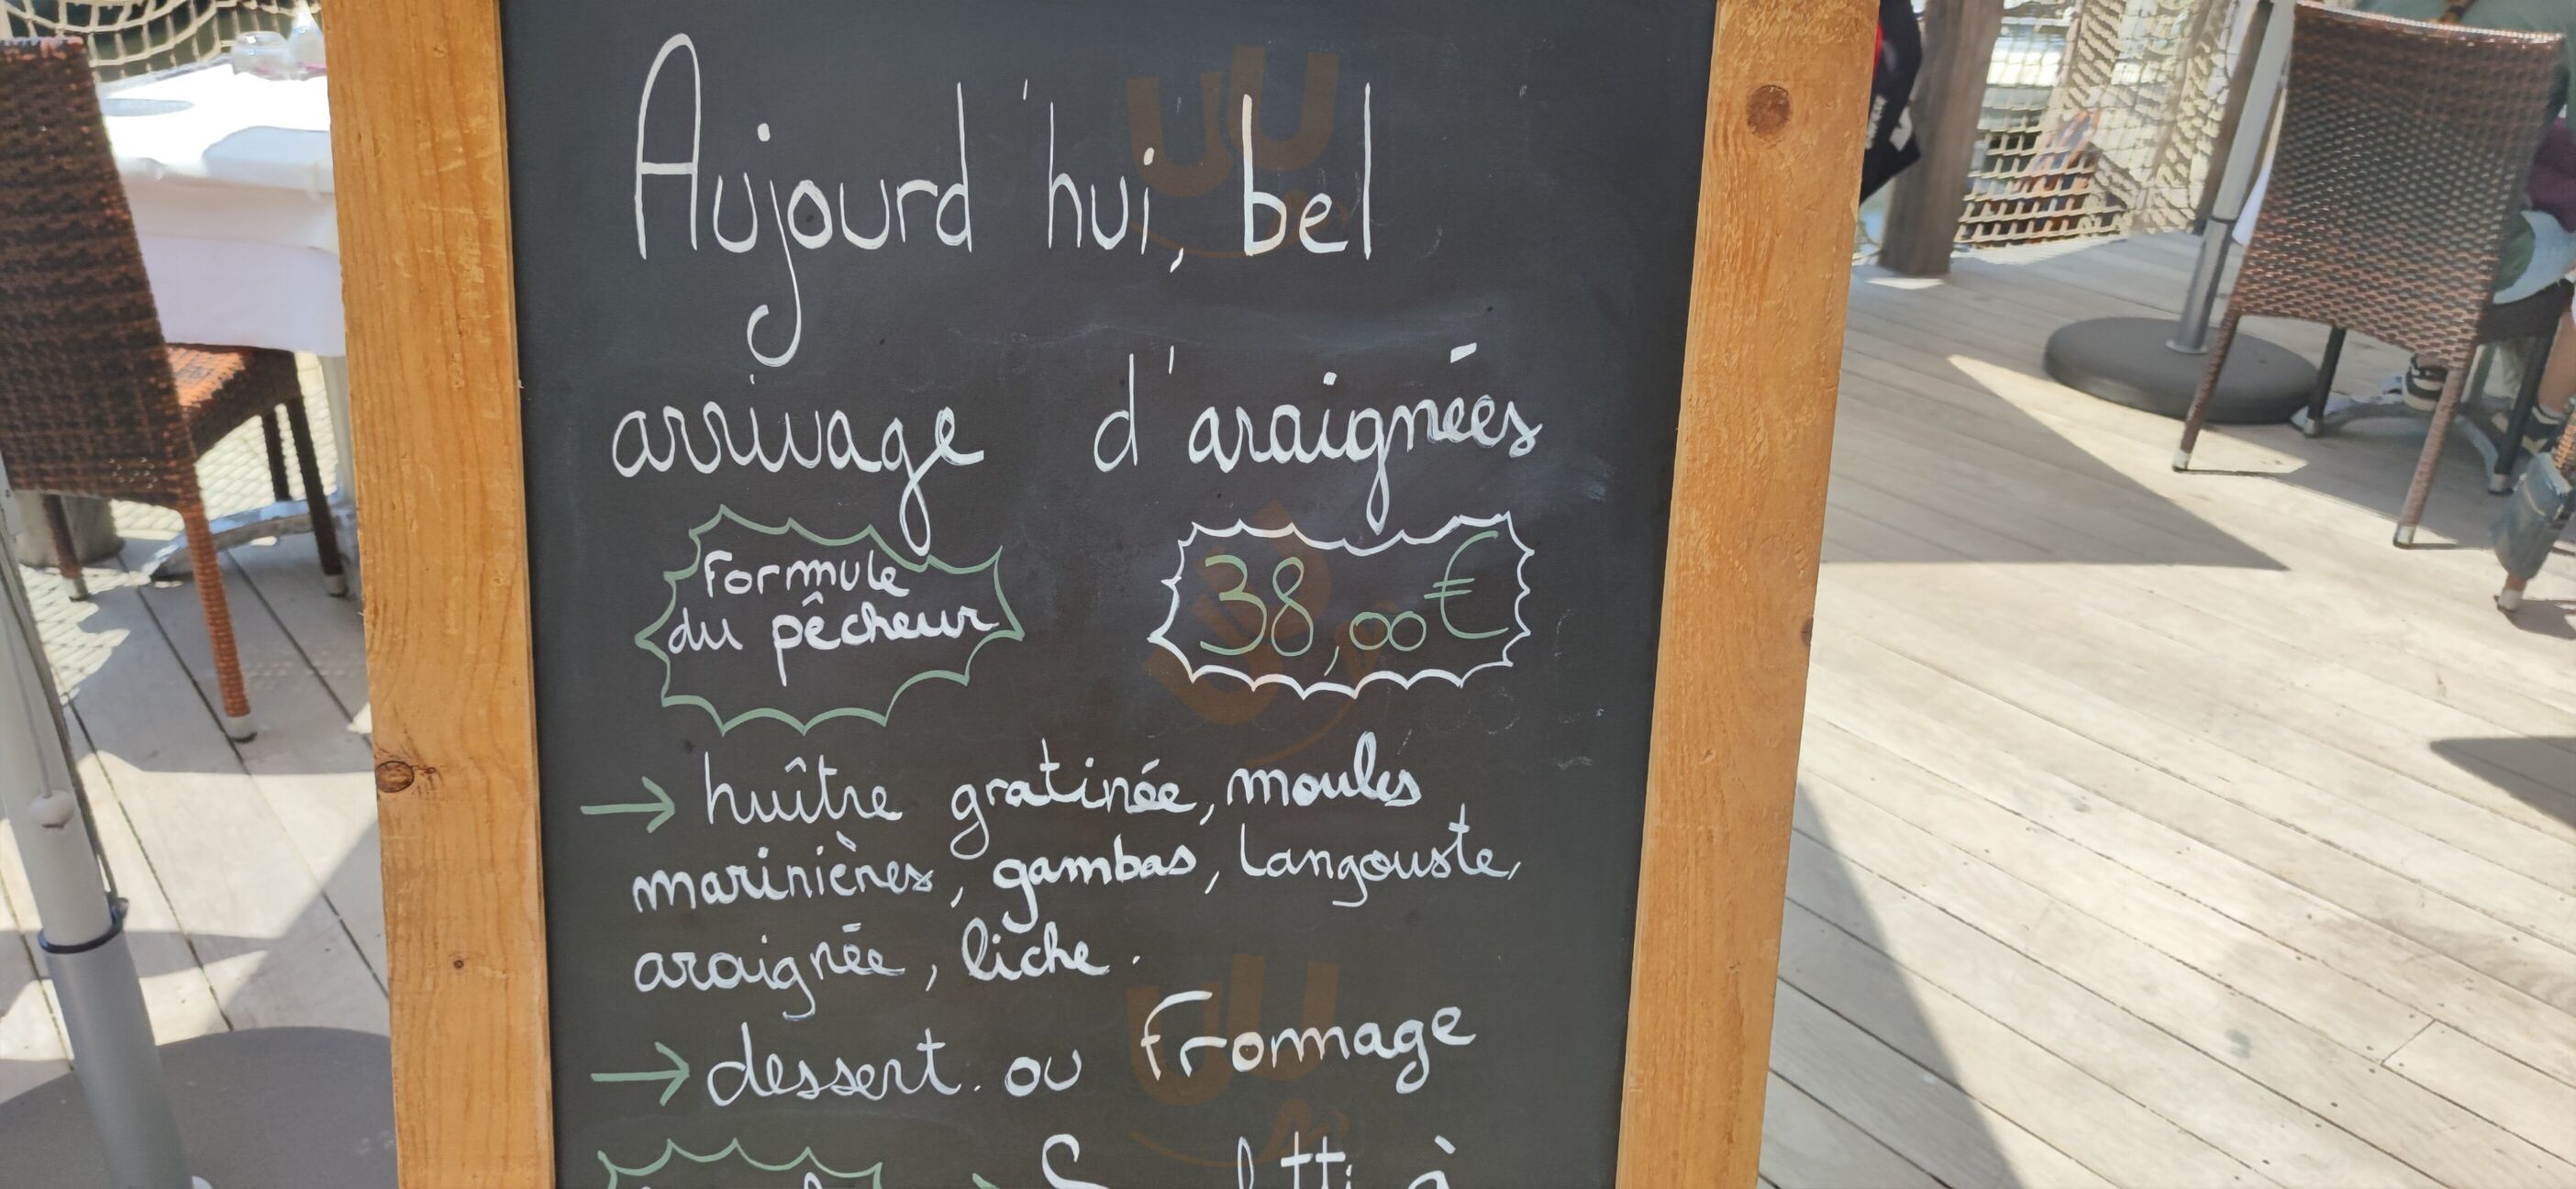 Aujourd'hui, bel
arrivage d'araignées
Formule
du pêcheur
38,00€
→ huître gratinée, moules
marinières, gambas, langouste,
araignée, liche.
→ dessert. ou fromage
à